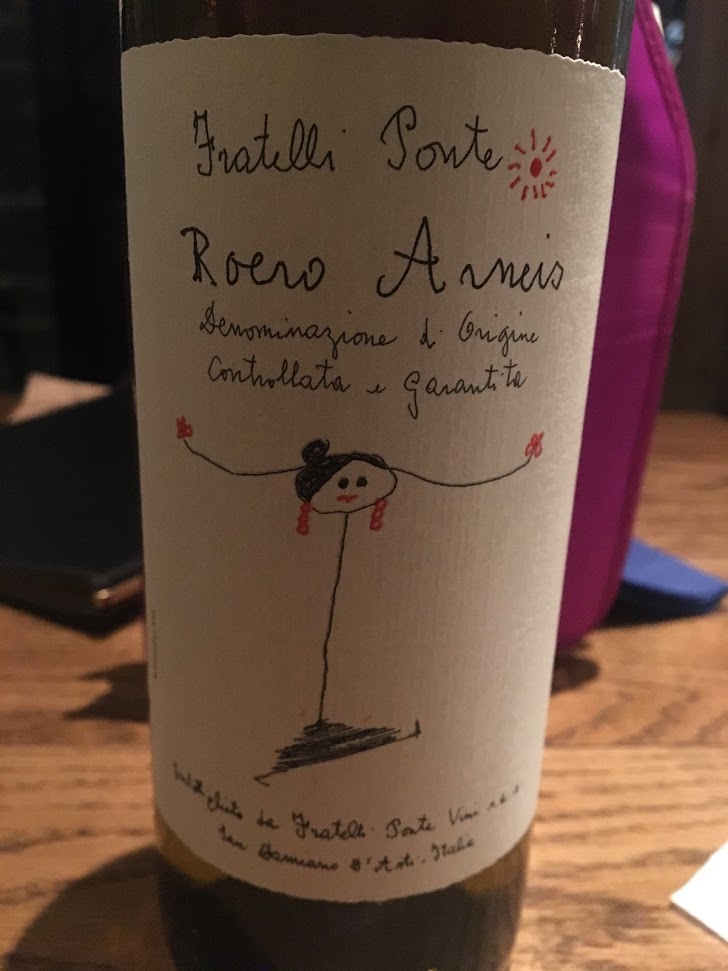 Fratelli Ponte
Roero Arneis
Denominazione di Origine
Controllata e Garantita
Imbottigliato da Fratelli Ponte Vini s.s.a
San Damiano D'Asti - Italia